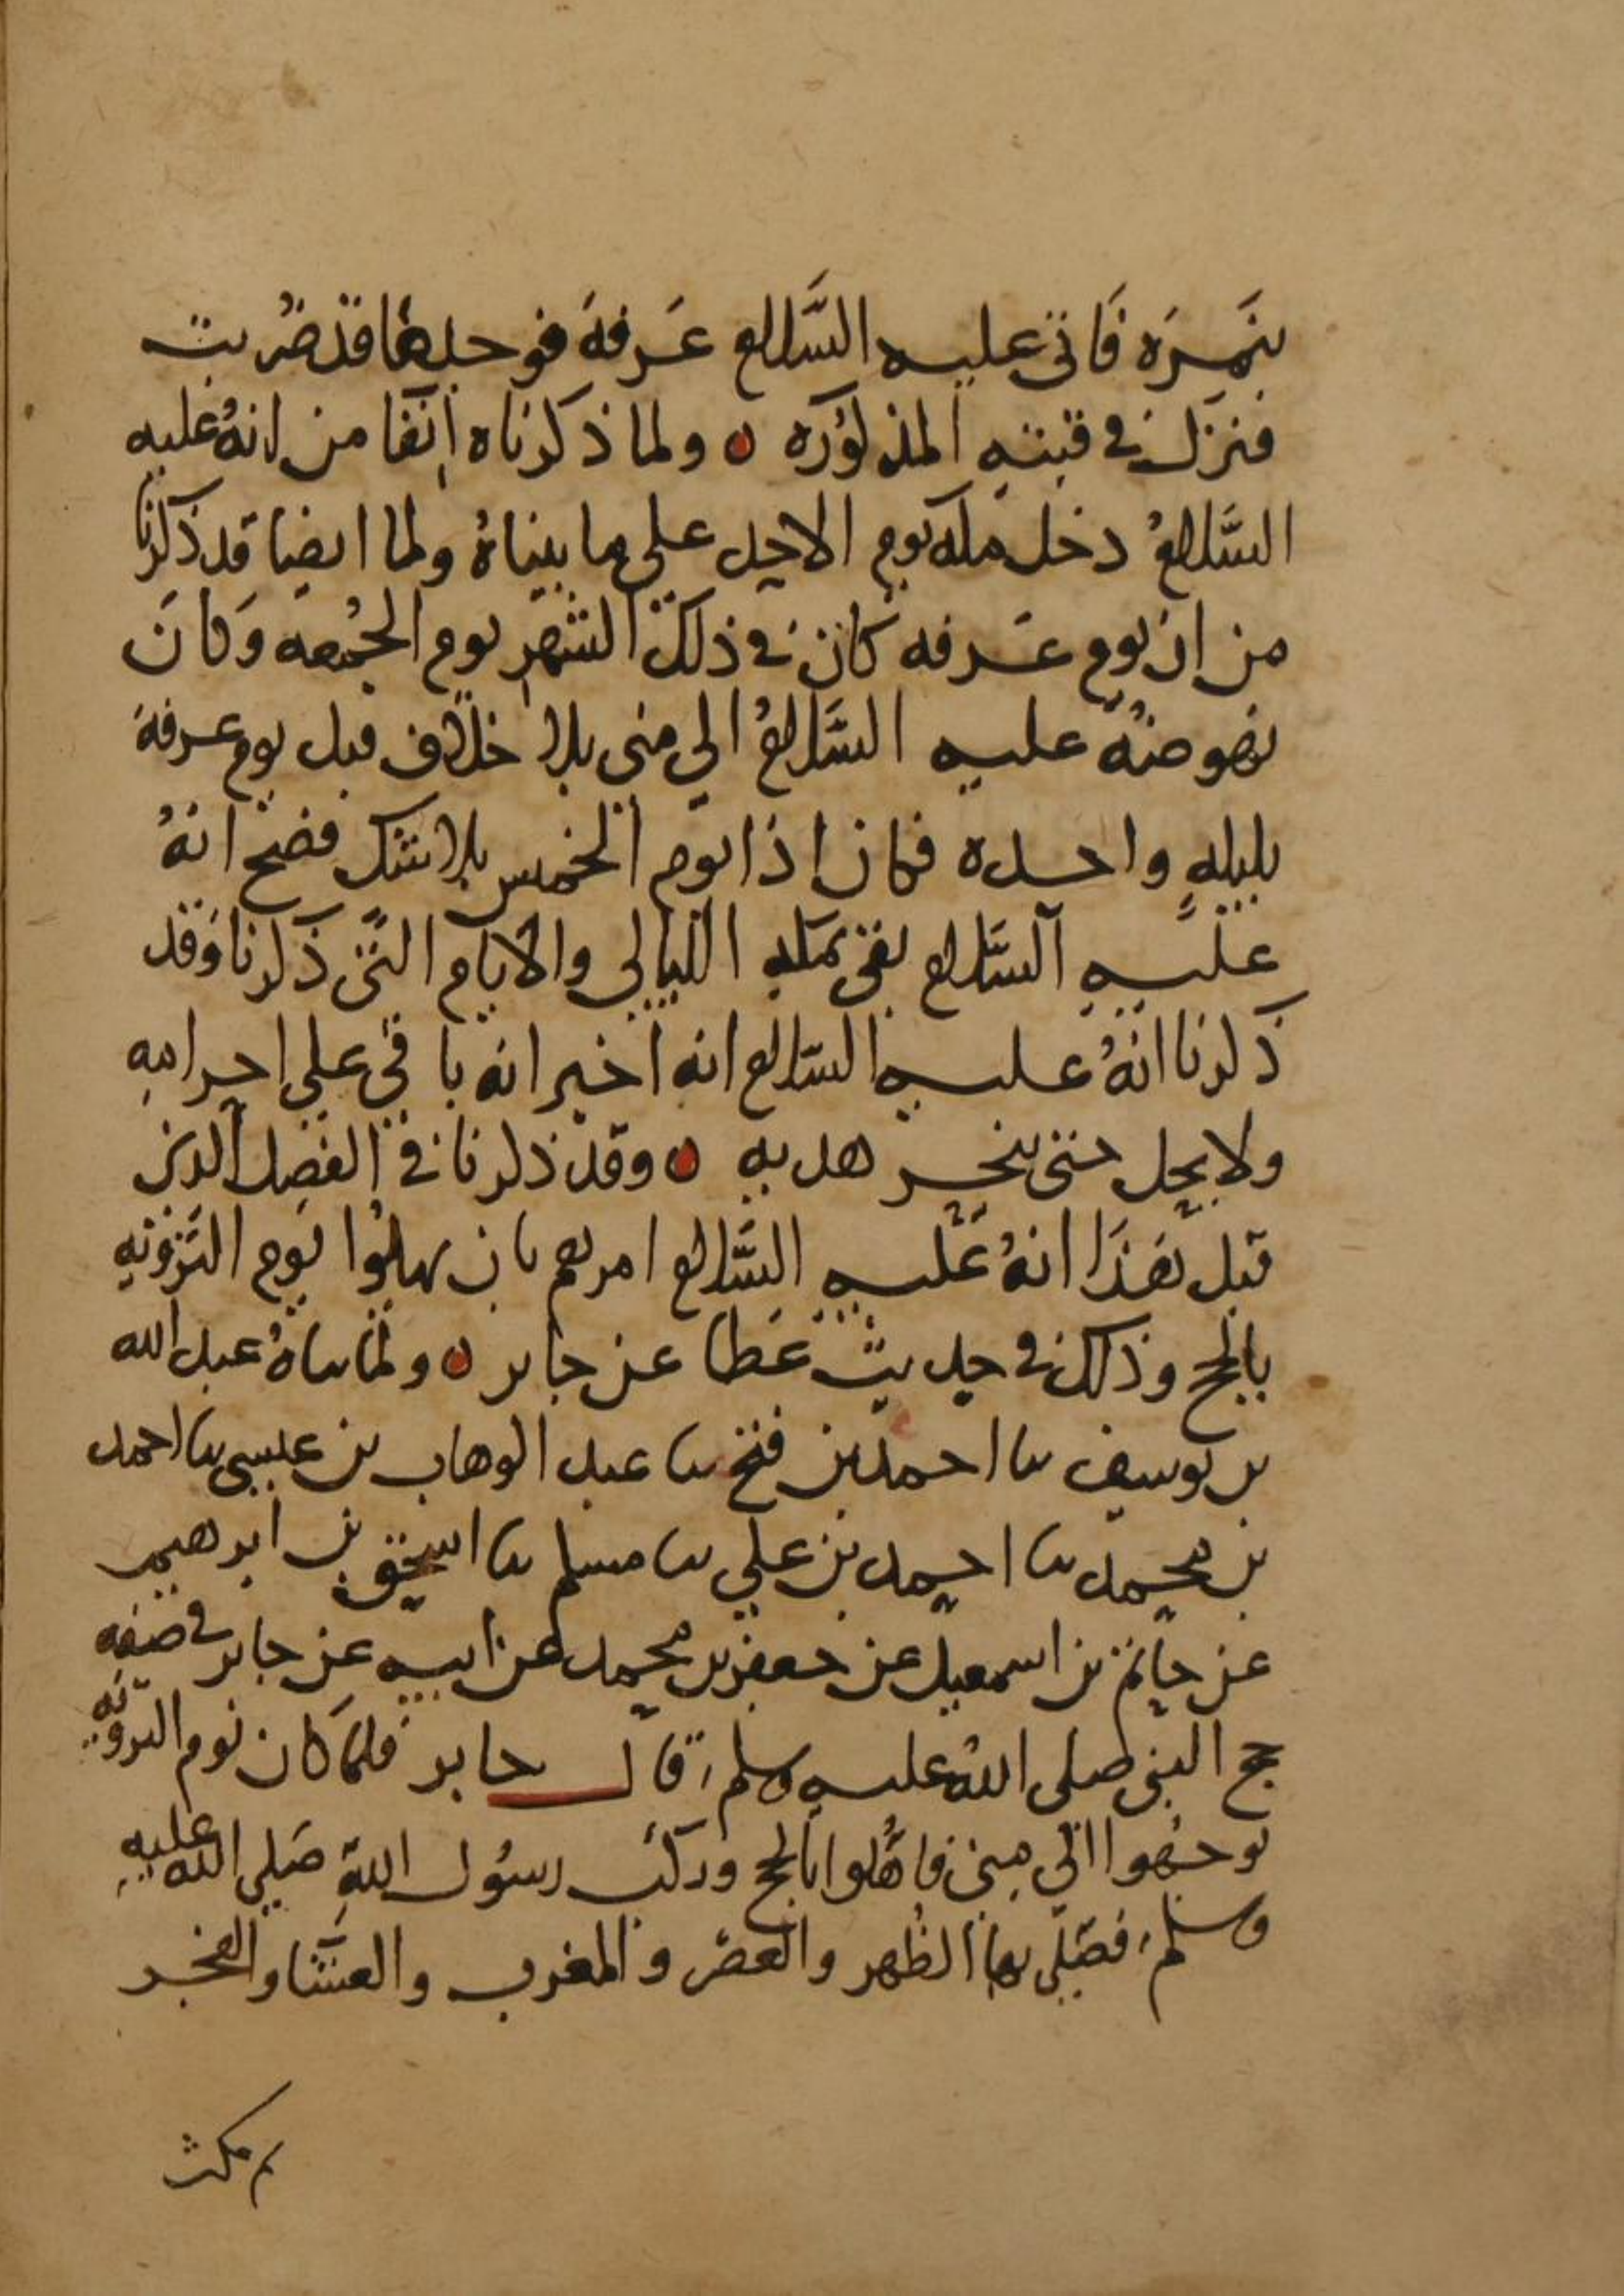 بنَمِرَه فَاتى عليه السَّلام عَرفةَ فوجدها قد ضُربت
فنزل في قبته المذكوره ٥ ولما ذكرناه انفا من انهُ عليه
السَّلامُ دخل مكه يوم الاحد على ما بيناهُ ولما ايضا قد ذكرنا
من ان يوم عَرفه كان في ذلك الشهر يوم الجُمعه وَكانَ
نهوضهُ عليه السَّلامُ الى منى بلا خلاف قبل يوم عرفة
بليلهٍ واحده فكان اذا يوم الخميس بلا شك فصح انهُ
عليه السَّلام بقى بمكه الليالى والايام التى ذكرنا وَقد
ذكرنا انهُ عليه السَّلام انه اخبر انه باقى على احرامهِ
ولا يحل حتى ينحر هديه ٥ وقد ذكرنا في الفصل الذى
قبل هَذَا انهُ عَليه السَّلام امرهم بان يهلوُا يَوم التَرويهِ
بالحج وذلك في حديث عَطا عن جابر ٥ ولما ساهُ عبد الله
بن يوسف نا احمد بن فتح نا عبد الوهاب بن عيسى نا احمد
بن محمد نا احمد بن علي نا مسلم نا اسحق بن ابرهيم
عن حاتم بن اسمعيل عن جعفر بن محمد عن ابيه عن جابر في صفه
حج النبى صلى اللهُ عليه وسلم، قال جابر فلما كان يوم الترويه
توجهوا الى مِنى فاهَلُّوا بالحج وركبَ رسوُل اللهِ صَلى الله عليه
وسلم، فصَلى بها الظُهر والعصر والمغرب والعشا والفجر
ثم مكث